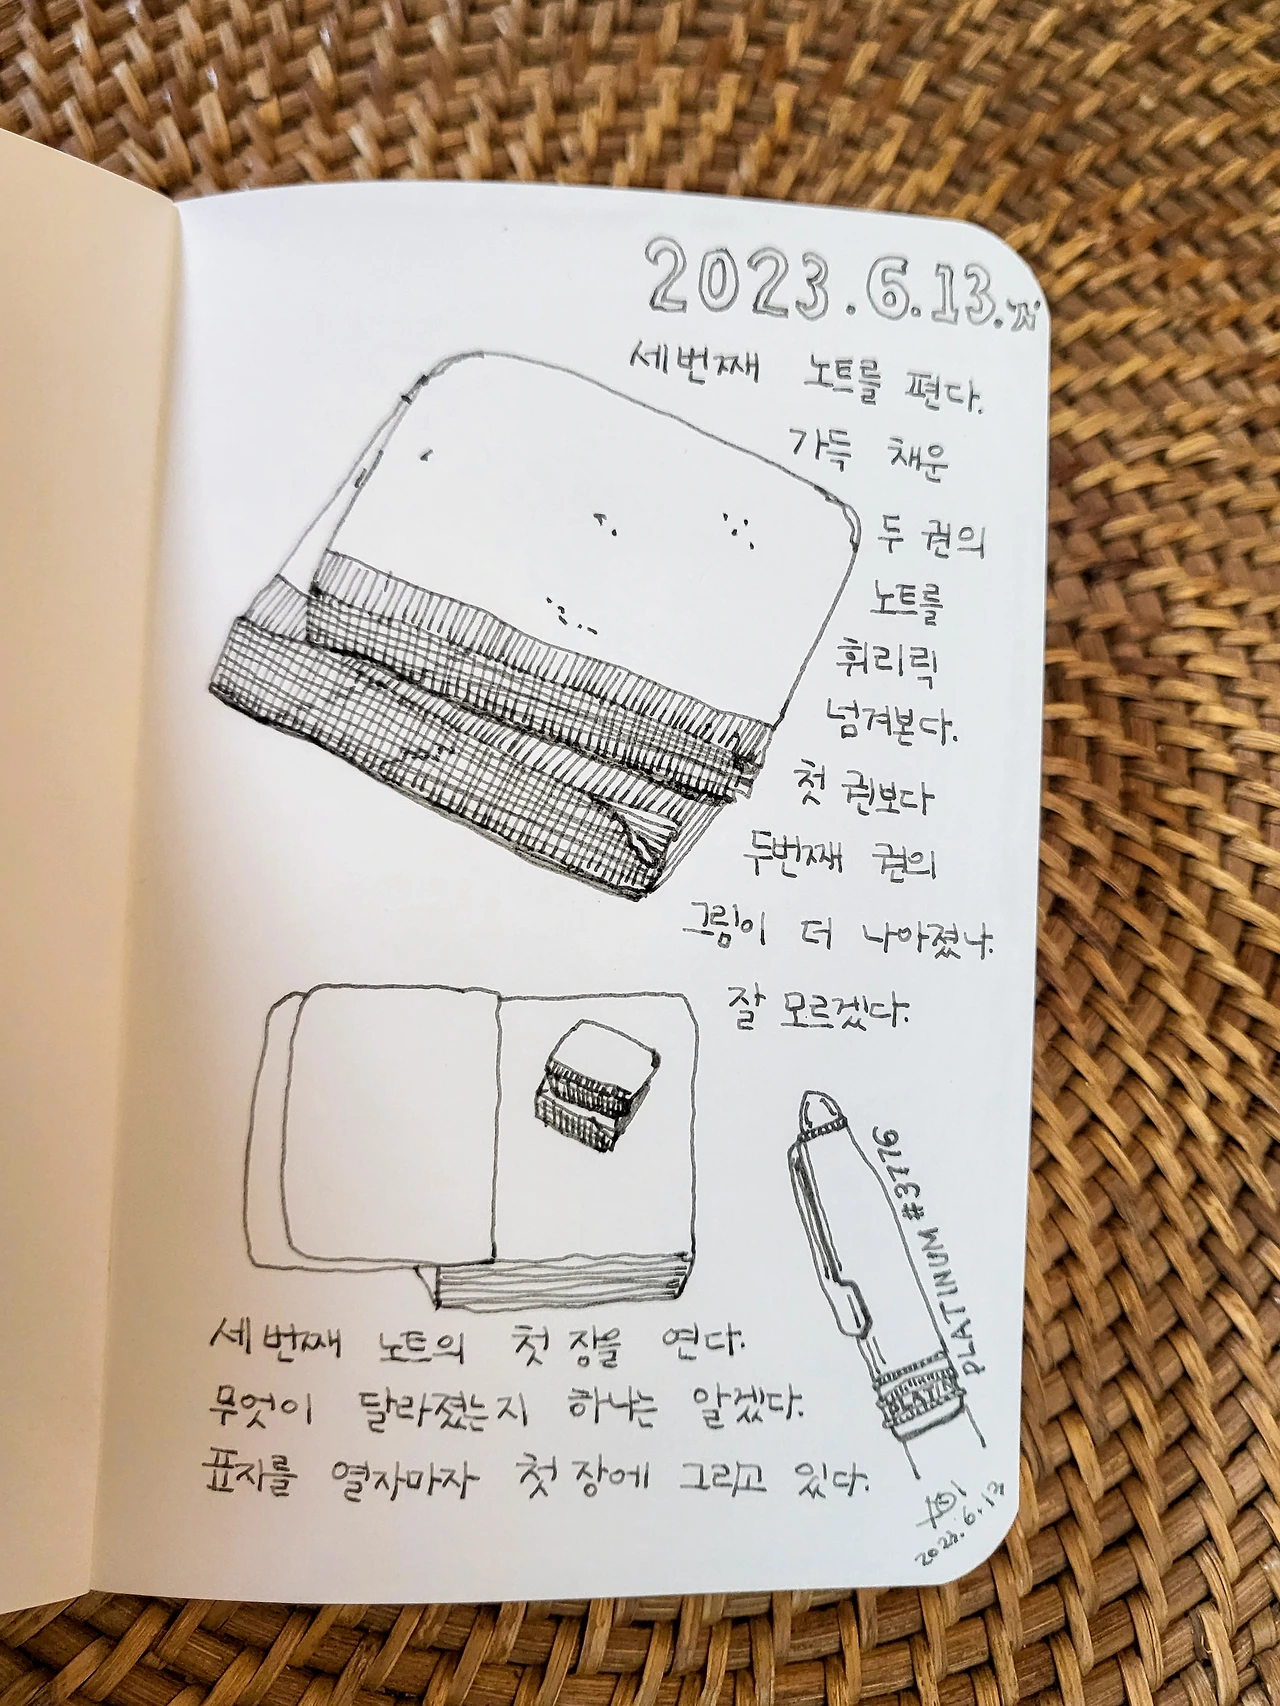 2023.6.13.
세번째 노트를 편다.
가득 채운
두 권의
노트를
휘리릭
넘겨본다.
첫 권보다
두번째 권의
그림이 더 나아졌나.
잘 모르겠다.
PLATINUM #3776
PLATIN
세번째 노트의 첫 장을 연다.
무엇이 달라졌는지 하나는 알겠다.
표지를 열자마자 첫 장에 그리고 있다.
2023.6.13